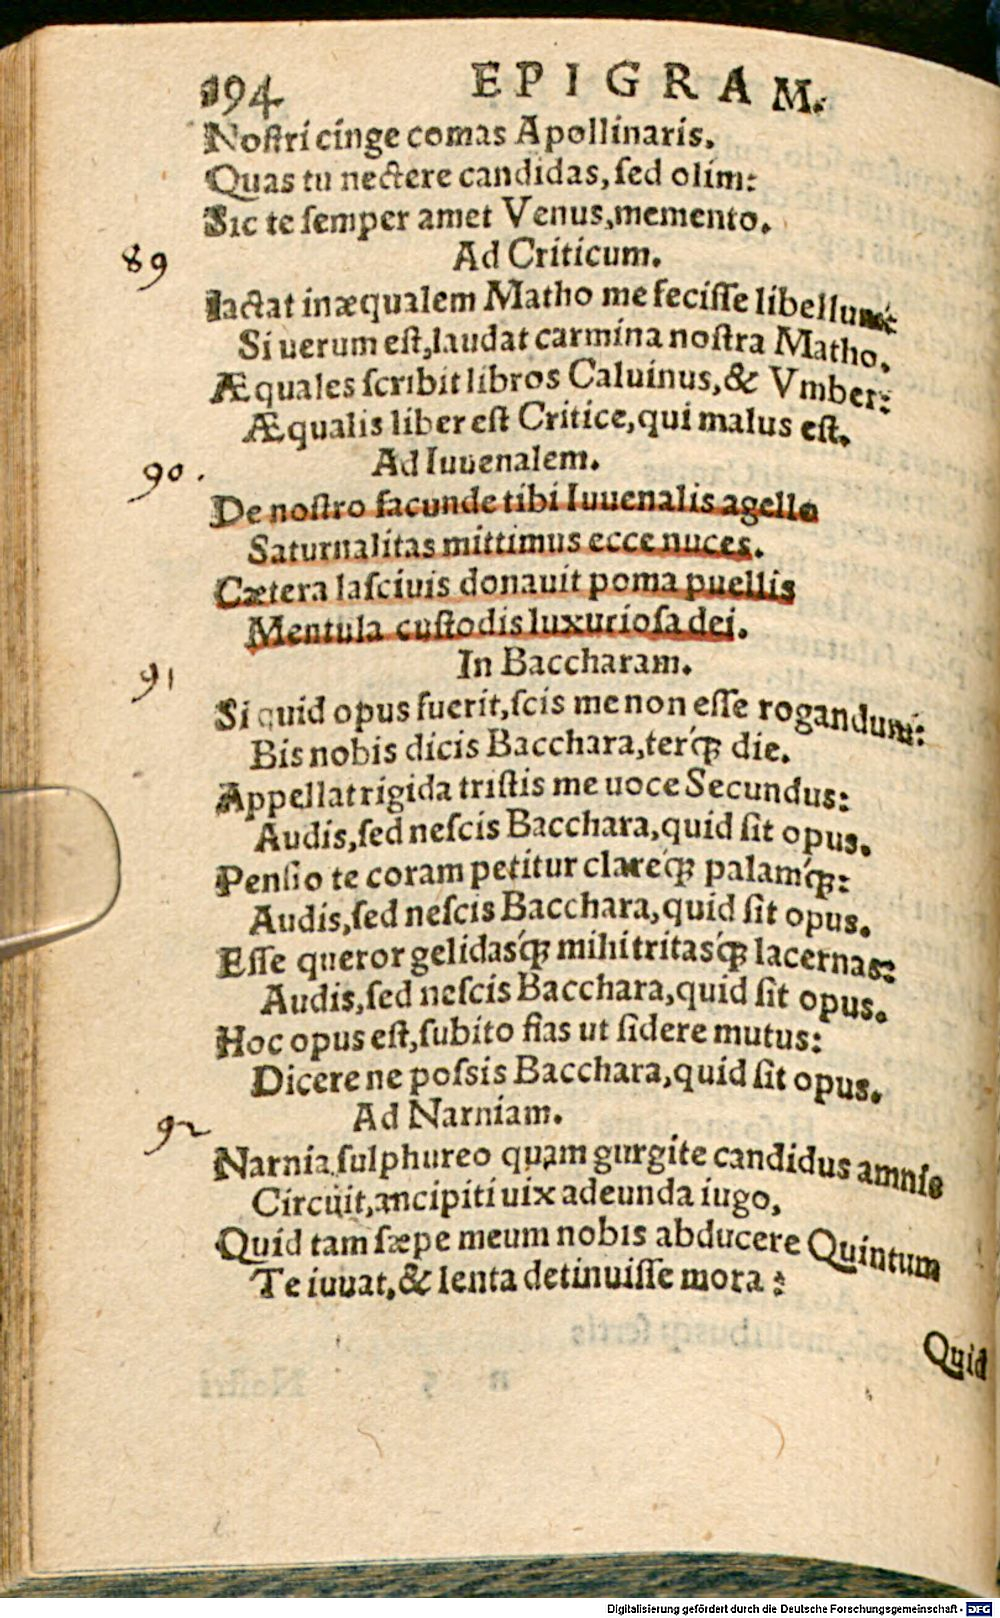 194 EPIGRAM.
Noſtri cinge comas Apollinaris.
Quas tu nectere candidas, ſed olim:
Sic te ſemper amet Venus, memento.
89 Ad Criticum.
Iactat inæqualem Matho me feciſſe libellum:
Si uerum eſt, laudat carmina noſtra Matho.
Æquales ſcribit libros Caluinus, & Vmber:
Æqualis liber eſt Critice, qui malus eſt.
90. Ad Iuuenalem.
De noſtro facunde tibi Iuuenalis agello
Saturnalitas mittimus ecce nuces.
Cætera laſciuis donauit poma puellis
Mentula cuſtodis luxurioſa dei.
91 In Baccharam.
Si quid opus fuerit, ſcis me non eſſe rogandum:
Bis nobis dicis Bacchara, terq́; die.
Appellat rigida triſtis me uoce Secundus:
Audis, ſed neſcis Bacchara, quid ſit opus.
Penſio te coram petitur clareq́; palamq́;:
Audis, ſed neſcis Bacchara, quid ſit opus.
Eſſe queror gelidasq́; mihi tritasq́; lacernas:
Audis, ſed neſcis Bacchara, quid ſit opus.
Hoc opus eſt, ſubito fias ut ſidere mutus:
Dicere ne poſsis Bacchara, quid ſit opus.
92 Ad Narniam.
Narnia, ſulphureo quam gurgite candidus amnis
Circuit, ancipiti uix adeunda iugo,
Quid tam ſæpe meum nobis abducere Quintum
Te iuuat, & lenta detinuiſſe mora:
Quid
Digitalisierung gefördert durch die Deutsche Forschungsgemeinschaft - DFG